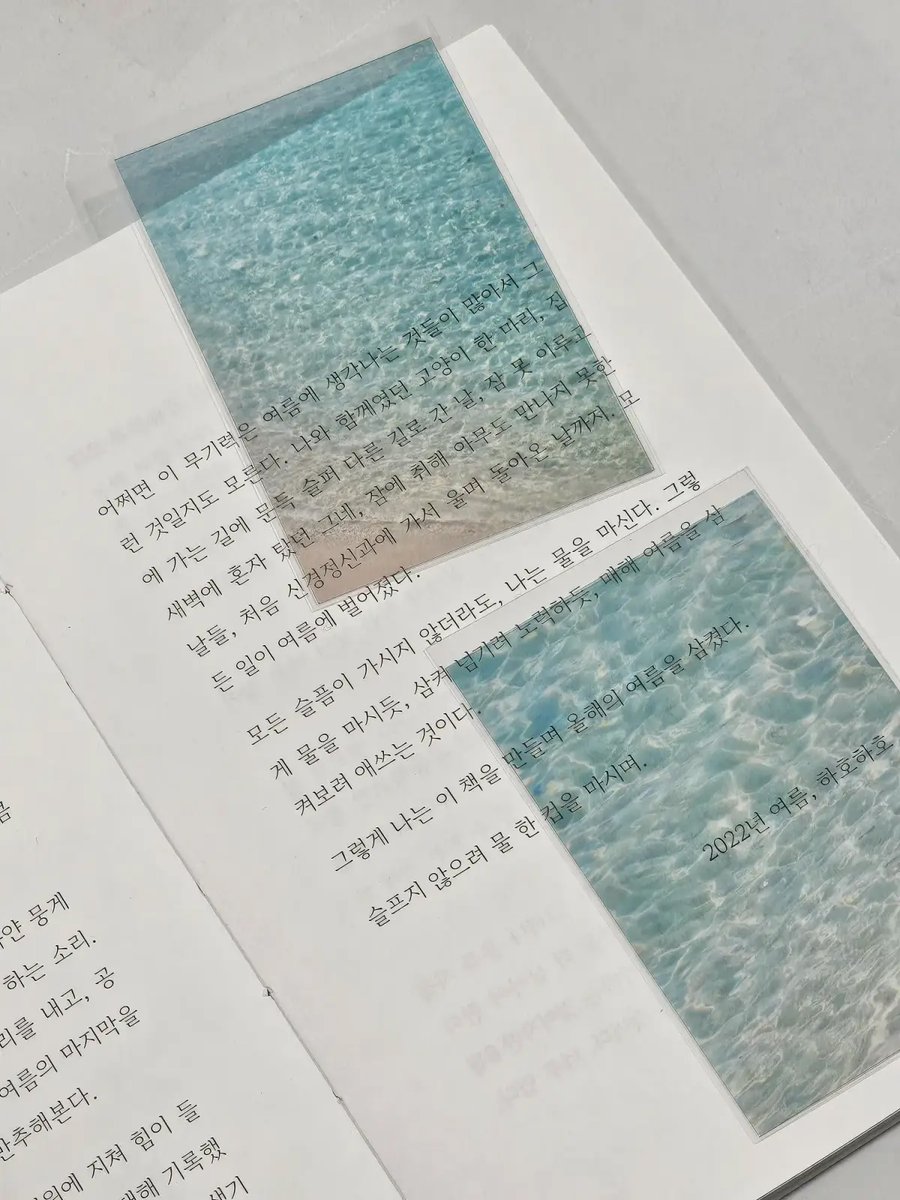 곰
하얀 뭉게
하는 소리.
리를 내고, 공
여름의 마지막을
만추해본다.
위에 지쳐 힘이 들
대해 기록했
생기
어쩌면 이 무기력은 여름에 생각나는 것들이 많아서 그
런 것일지도 모른다. 나와 함께였던 고양이 한 마리, 집
에 가는 길에 문득 슬퍼 다른 길로 간 날, 잠 못 이루고
새벽에 혼자 탔던 그네, 잠에 취해 아무도 만나지 못한
날들, 처음 신경정신과에 가서 울며 돌아온 날까지. 모
든 일이 여름에 벌어졌다.
모든 슬픔이 가시지 않더라도, 나는 물을 마신다. 그렇
게 물을 마시듯, 삼켜 넘기려 노력하듯, 매해 여름을 삼
켜보려 애쓰는 것이다.
그렇게 나는 이 책을 만들며 올해의 여름을 삼켰다.
슬프지 않으려 물 한 컵을 마시며.
2022년 여름, 하호하호